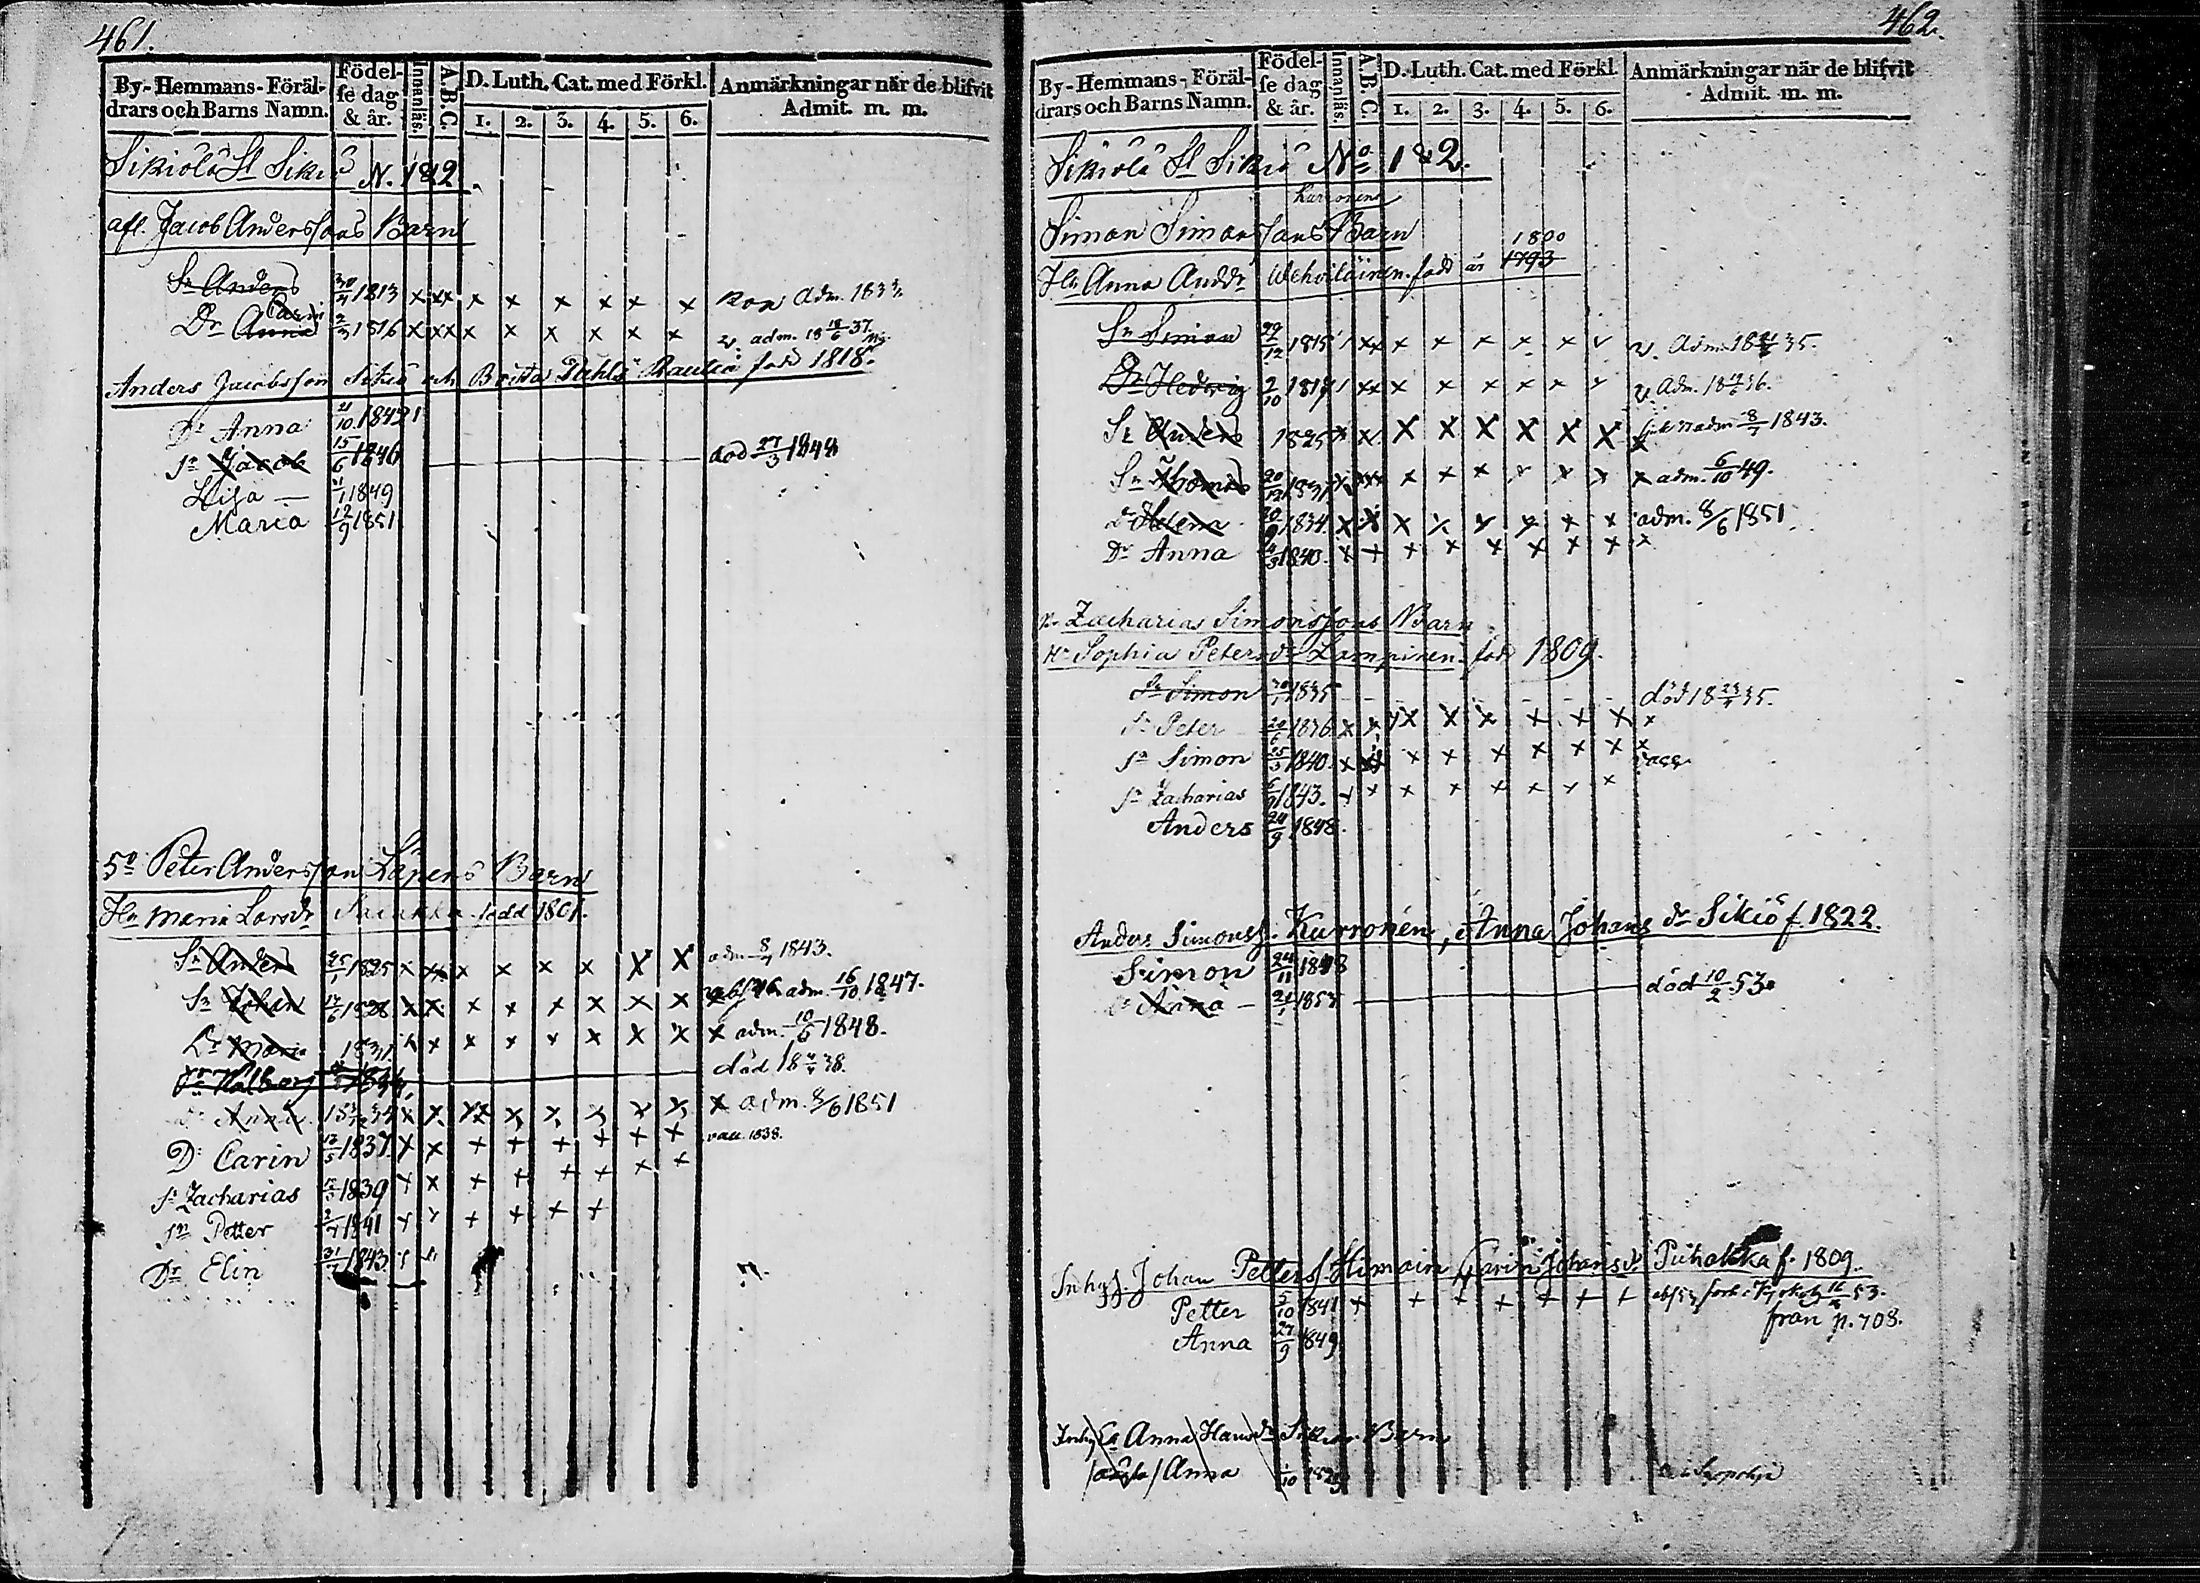 461.
By-Hemmans-Föräl-drars och Barns Namn. Födel-se dag & år. Innanläs. A.B.C. D. Luth. Cat. med Förkl. 1. 2. 3. 4. 5. 6. Anmärkningar när de blifvit Admit. m. m.
Sikiölä St N. 1&2
afl. Jacob Anderssons Barn
Sn Anders 30/4 1813 x xx x x x x x x adm. 183
Dr Anna Carin 2/3 1816 x xx x x x x x x v. adm. 18 18/6 37.
Anders Jacobsson Sikiö och Britta Pahls fodd 1818.
Dr Anna 21/10 1842 1
Sn Jacob 15/6 1846 död 27/3 1848
Lisa — 21/1 1849
Maria 12/9 1851
50 Peter Andersson Barn
Hu Maria Larsdr fodd 1801.
Sn Anders 25/1 1825 x xx x x x x X X adm 8/7 1843.
Sn Johan 17/6 1828 x x x x x x x x adm. 16/10 1847.
Dr Maria 1831. x x x x x x x x x adm. 10/6 1848.
Dr Walborg död 18 38.
Dr Anna 34 x x xx x x x x x x adm. 8/6 1851
Dr Carin 12/5 1837 x x + + + + + + vacc. 1838.
Sn Zacharias 1839 + x + + + + + +
Sn Petter 2/7 1841 + + + + + +
Dr Elin 31/ 1843
462.
By-Hemmans-Föräl-drars och Barns Namn. Födel-se dag & år. Innanläs. A.B.C. D. Luth. Cat. med Förkl. 1. 2. 3. 4. 5. 6. Anmärkningar när de blifvit Admit. m. m.
Sikiölä St Sikiö No 1&2.
Karronens
Simon Simonssons Barn
1800
Hu Anna Anddr Wehviläinen. född år 1793
Sn Simon 29/12 1815 / xx x x x x x v v. Adm. 18 35.
Dr Hedvig 2/10 1817 / xx x x x x x v v. Adm. 18 36.
Sn Anders 1825 x x X X X X X X adm 8/7 1843.
Sn Thomas 20/12 1831 x xx x x x x x x x adm. 6/10 49.
Dr Helena 20/9 1834. x x x x x x x x adm. 8/6 1851
Dr Anna 4/3 1840. + + + + + + + + x
Zacharias Simonssons Barn
Hu Sophia Petersdr Lampinen. född 1809.
Sn Simon 1835 död 18 35.
Sn Peter 20/6 1836 x x x x x x x x x
Sn Simon 25/3 1840. x x + + + + + + x vacc
Sn Zacharias 6/9 1843. + + + + + + + +
Anders 24/9 1848.
Anders Simonss. Karronen, Anna Johans dr Sikiö f. 1822.
Simon 24/11 1848
Dr Anna — 21/1 1853 död 10/2 53.
Inhys. Johan Petters. Himain, Carin Johans dr Puhakka f. 1809.
Petter 5/10 1841 + + + + + + + 53.
från p. 708.
Anna 27/9 1849
Inhys Anna Hans dr Barn
Anna